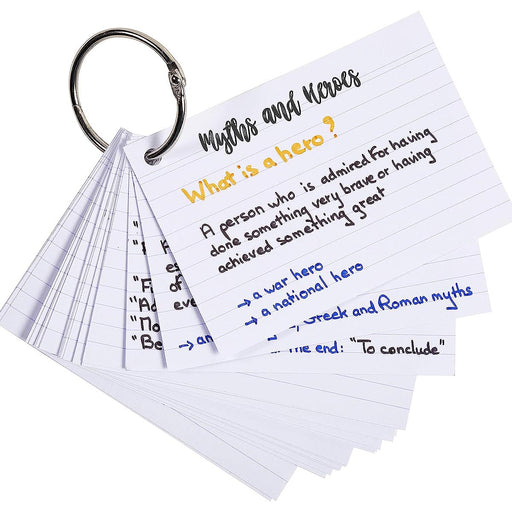 Myths and Heroes
What is a hero?
A person who is admired for having
done something very brave or having
achieved something great
→ a war hero
→ a national hero
→ an
Greek and Roman myths
the end: "To conclude"
of